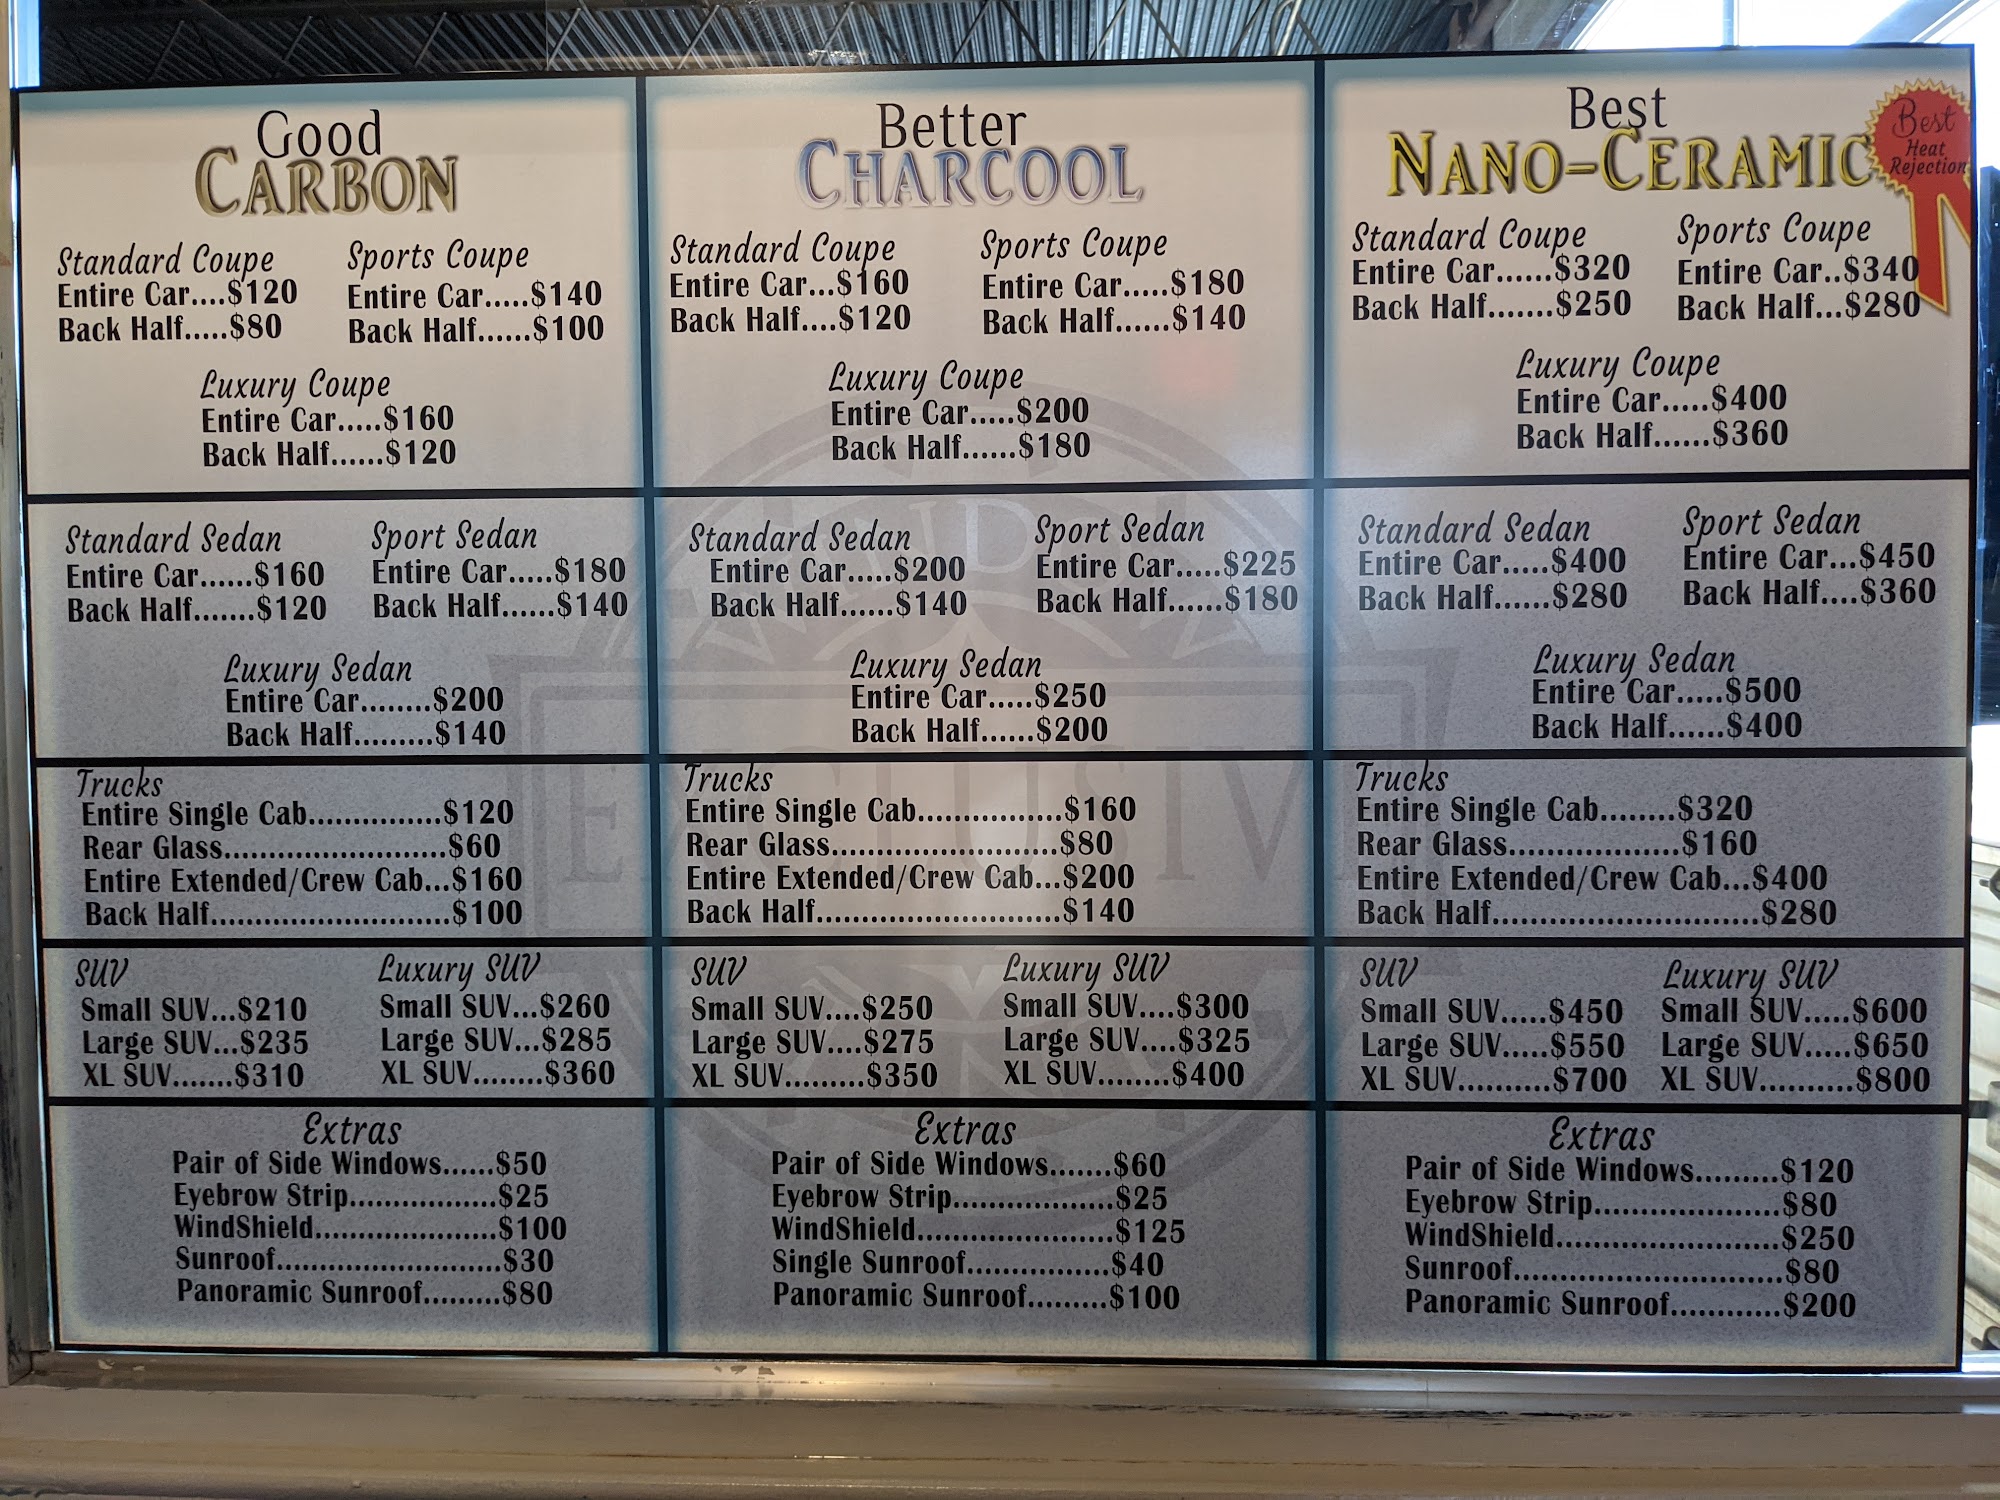 Good
CARBON
Standard Coupe
Entire Car....$120
Back Half.....$80
Sports Coupe
Entire Car.....$140
Back Half......$100
Luxury Coupe
Entire Car.....$160
Back Half......$120
Standard Sedan
Entire Car......$160
Back Half.......$120
Sport Sedan
Entire Car.....$180
Back Half......$140
Luxury Sedan
Entire Car........$200
Back Half.........$140
Trucks
Entire Single Cab...............$120
Rear Glass.........................$60
Entire Extended/Crew Cab...$160
Back Half...........................$100
SUV
Small SUV...$210
Large SUV...$235
XL SUV.......$310
Luxury SUV
Small SUV...$260
Large SUV...$285
XL SUV........$360
Extras
Pair of Side Windows......$50
Eyebrow Strip.................$25
WindShield.....................$100
Sunroof..........................$30
Panoramic Sunroof.........$80
Better
CHARCOOL
Standard Coupe
Entire Car...$160
Back Half....$120
Sports Coupe
Entire Car.....$180
Back Half......$140
Luxury Coupe
Entire Car.....$200
Back Half......$180
Standard Sedan
Entire Car.....$200
Back Half......$140
Sport Sedan
Entire Car.....$225
Back Half......$180
Luxury Sedan
Entire Car.....$250
Back Half......$200
Trucks
Entire Single Cab................$160
Rear Glass..........................$80
Entire Extended/Crew Cab...$200
Back Half............................$140
SUV
Small SUV....$250
Large SUV....$275
XL SUV.........$350
Luxury SUV
Small SUV....$300
Large SUV....$325
XL SUV........$400
Extras
Pair of Side Windows.......$60
Eyebrow Strip...................$25
WindShield.......................$125
Single Sunroof................$40
Panoramic Sunroof.........$100
Best
NANO-CERAMIC
Best
Heat
Rejection
Standard Coupe
Entire Car......$320
Back Half.......$250
Sports Coupe
Entire Car..$340
Back Half...$280
Luxury Coupe
Entire Car.....$400
Back Half......$360
Standard Sedan
Entire Car.....$400
Back Half......$280
Sport Sedan
Entire Car...$450
Back Half....$360
Luxury Sedan
Entire Car.....$500
Back Half......$400
Trucks
Entire Single Cab........$320
Rear Glass...................$160
Entire Extended/Crew Cab...$400
Back Half..............................$280
SUV
Small SUV.....$450
Large SUV.....$550
XL SUV..........$700
Luxury SUV
Small SUV.....$600
Large SUV.....$650
XL SUV..........$800
Extras
Pair of Side Windows.........$120
Eyebrow Strip....................$80
WindShield........................$250
Sunroof.............................$80
Panoramic Sunroof............$200